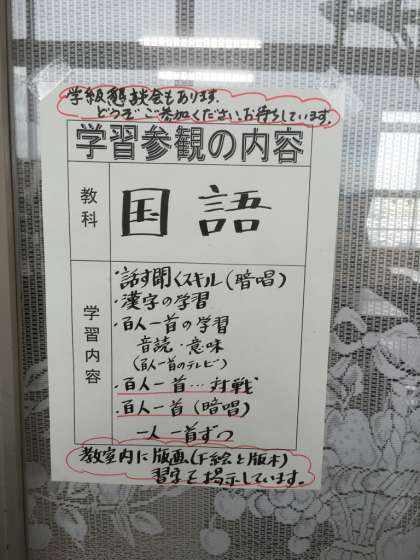 学級懇談会もあります。
どうぞご参加ください。お待ちしています。
学習参観の内容
教科
国語
学習内容
・話す聞くスキル(暗唱)
・漢字の学習
・百人一首の学習
音読・意味
(百人一首のテレビ)
・百人一首…対戦
・百人一首(暗唱)
一人一首ずつ
教室内に版画(下絵と版木)
習字を掲示しています。